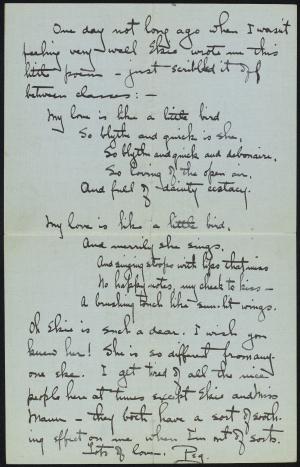 One day not long ago when I wasn't
feeling very well Elsie wrote me this
little poem - just scribbled it off
between classes: -
My love is like a little bird
So blythe and quick is she,
So blythe and quick and debonaire,
So loving of the open air.
And full of dainty ecstacy.
My love is like a little bird,
And merrily she sings.
And singing stoops with lips that miss
No happy notes, my cheek to kiss -
A brushing touch like sun-lit wings.
Oh Elsie is such a dear. I wish you
knew her! She is so different from any
one else. I get tired of all the nice
people here at times except Elsie and Miss
Mann - they both have a sort of sooth-
ing effect on me when I'm out of sorts.
Lots of love. Peg.